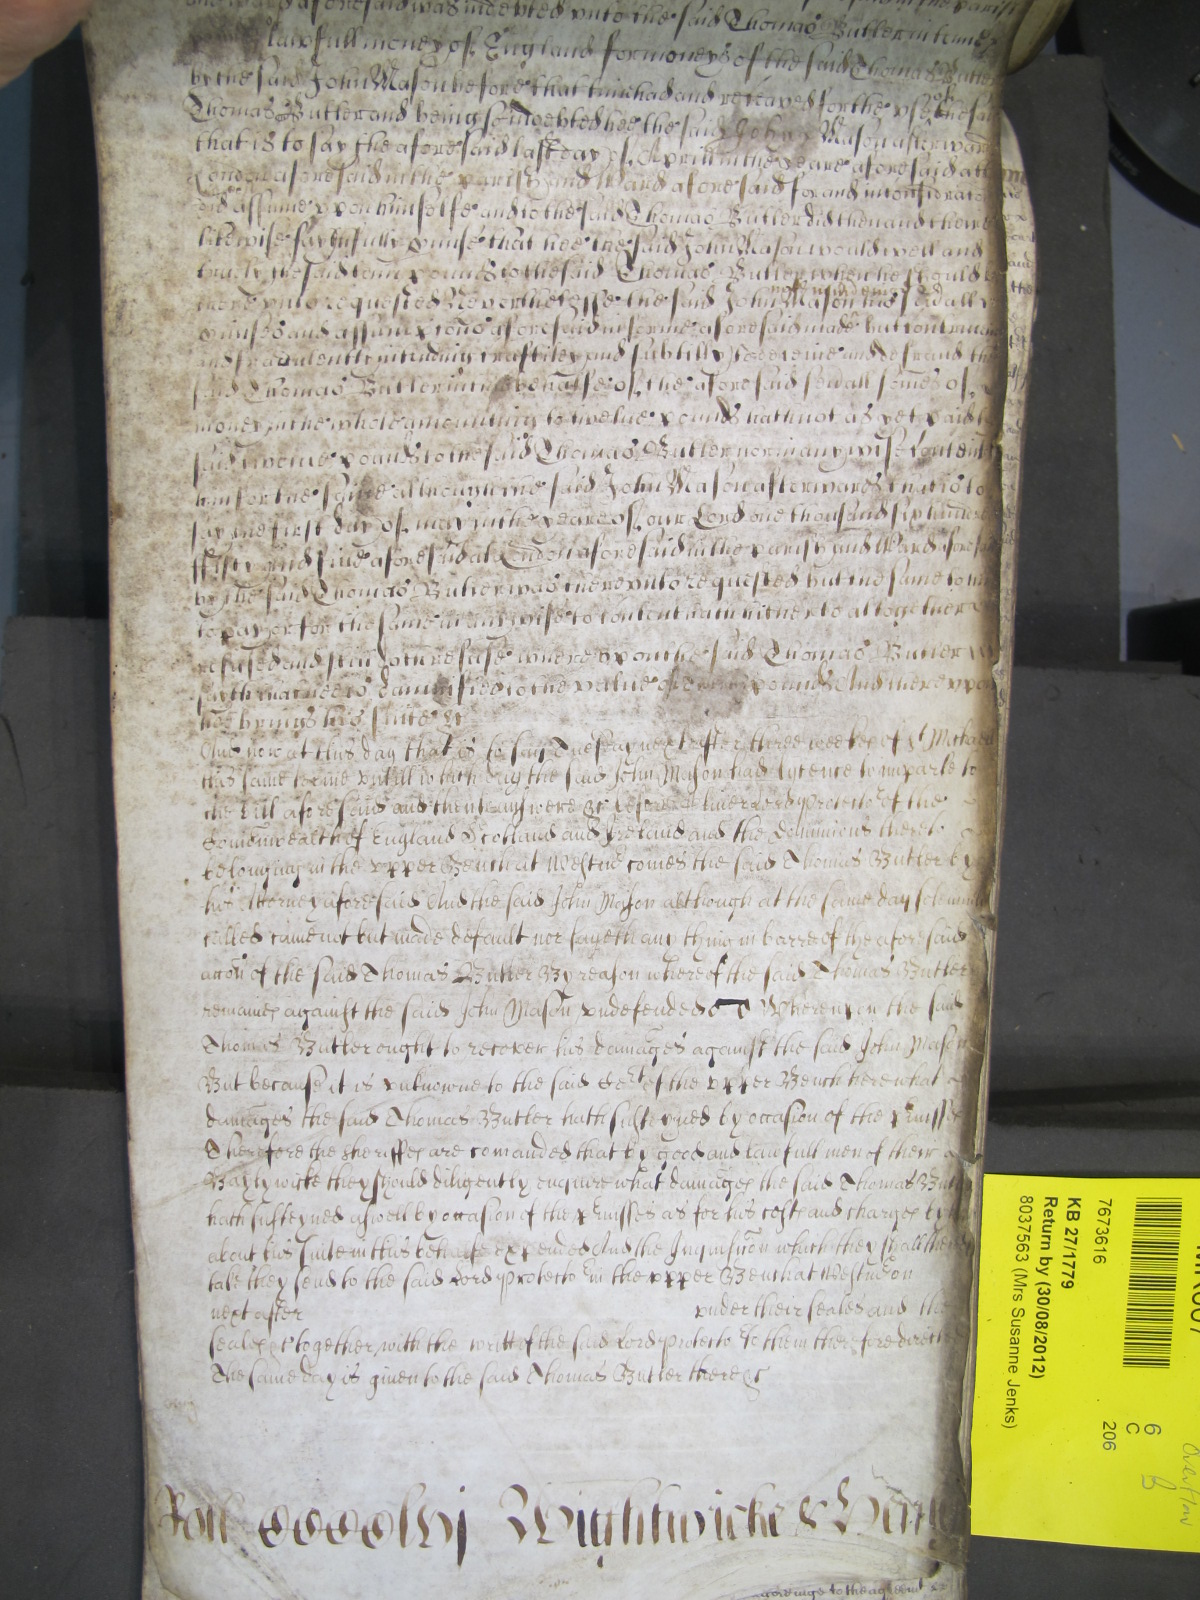 aforesaid was indebted unto the said Thomas Butler in
lawfull money of England for moneys of the said Thomas Butler
by the said John Mason before that time had and receaved for the use of the said
Thomas Butler and being soe indebted hee the said John Mason afterwards
that is to say the aforesaid last day of Aprill in the yeare aforesaid att
London aforesaid in the parish and Ward aforesaid for and in consideracon
did assume upon himselfe and to the said Thomas Butler did then and there
likewise faythfully pmise that hee the said John Mason would well and
truely the said pounds to the said Thomas Butler when he should
thereunto requested Neverthelesse the said John Mason his sevall
pmises and assumpcons aforesaid in forme aforesaid made but contriveing
and fraudulently intending craftiley and subtilly to deceive and defraud the
said Thomas Butler in the behalfe of the aforesaid sevall somes of
money in the whole amounting to twelve pounds hath not as yet paid
said twelve pounds to the said Thomas Butler nor in any wise contented
him for the same although the said John Mason afterwards that is to
say the first day of may in the yeare of our Lord one thousand six hundred
fifty and five aforesaid at London aforesaid in the parish and Ward aforesaid
by the said Thomas Butler was thereunto requested but the same to him
to pay or for the same in any wise to content hath hitherto altogether
refused and still doth refuse whereupon the said Thomas Butler
saith that hee is damnified to the value of pounds And thereupon
hee brings his suite &c
And now at this day that is to say Tuesday next after three weekes of St Michael
this same terme untill which day the said John Mason had lycence to imparle to
the bill aforesaid and then to answere &c before Oliver Lord Protector of the
Comonwealth of England Scotland and Ireland and the dominions thereto
belonging in the upper Bench at Westmr comes the said Thomas Butler by
his Attorney aforesaid And the said John Mason although at the same day solemnly
called came not but made default nor sayeth any thing in barre of the aforesaid
accon of the said Thomas Butler By reason whereof the said Thomas Butler
remaines against the said John Mason undefended Whereupon the said
Thomas Butler ought to recover his damages against the said John Mason
But because it is unknowne to the said Cort of the upper Bench here what
damages the said Thomas Butler hath susteyned by occasion of the pmisses
Therefore the Sheriffes are comanded that by good and lawfull men of their
Baylywicke they should diligently enquire what damages the said Thomas Butler
hath susteyned aswell by occasion of the pmisses as for his costs and charges by him
about his suite in this behalfe expended And the Inquisicon which they shall thereof
take they send to the said Lord Protector in the upper Bench at Westmr on
next after under their seales and the
seales &c together with the writt of the said Lord Protector to them therefore directed
The same day is given to the said Thomas Butler there &c
Roll Wightwicke &
agreeinge to the
7673616
KB 27/1779
Return by (30/08/2012)
8037563 (Mrs Susanne Jenks)
6
C
206
Overflow
B